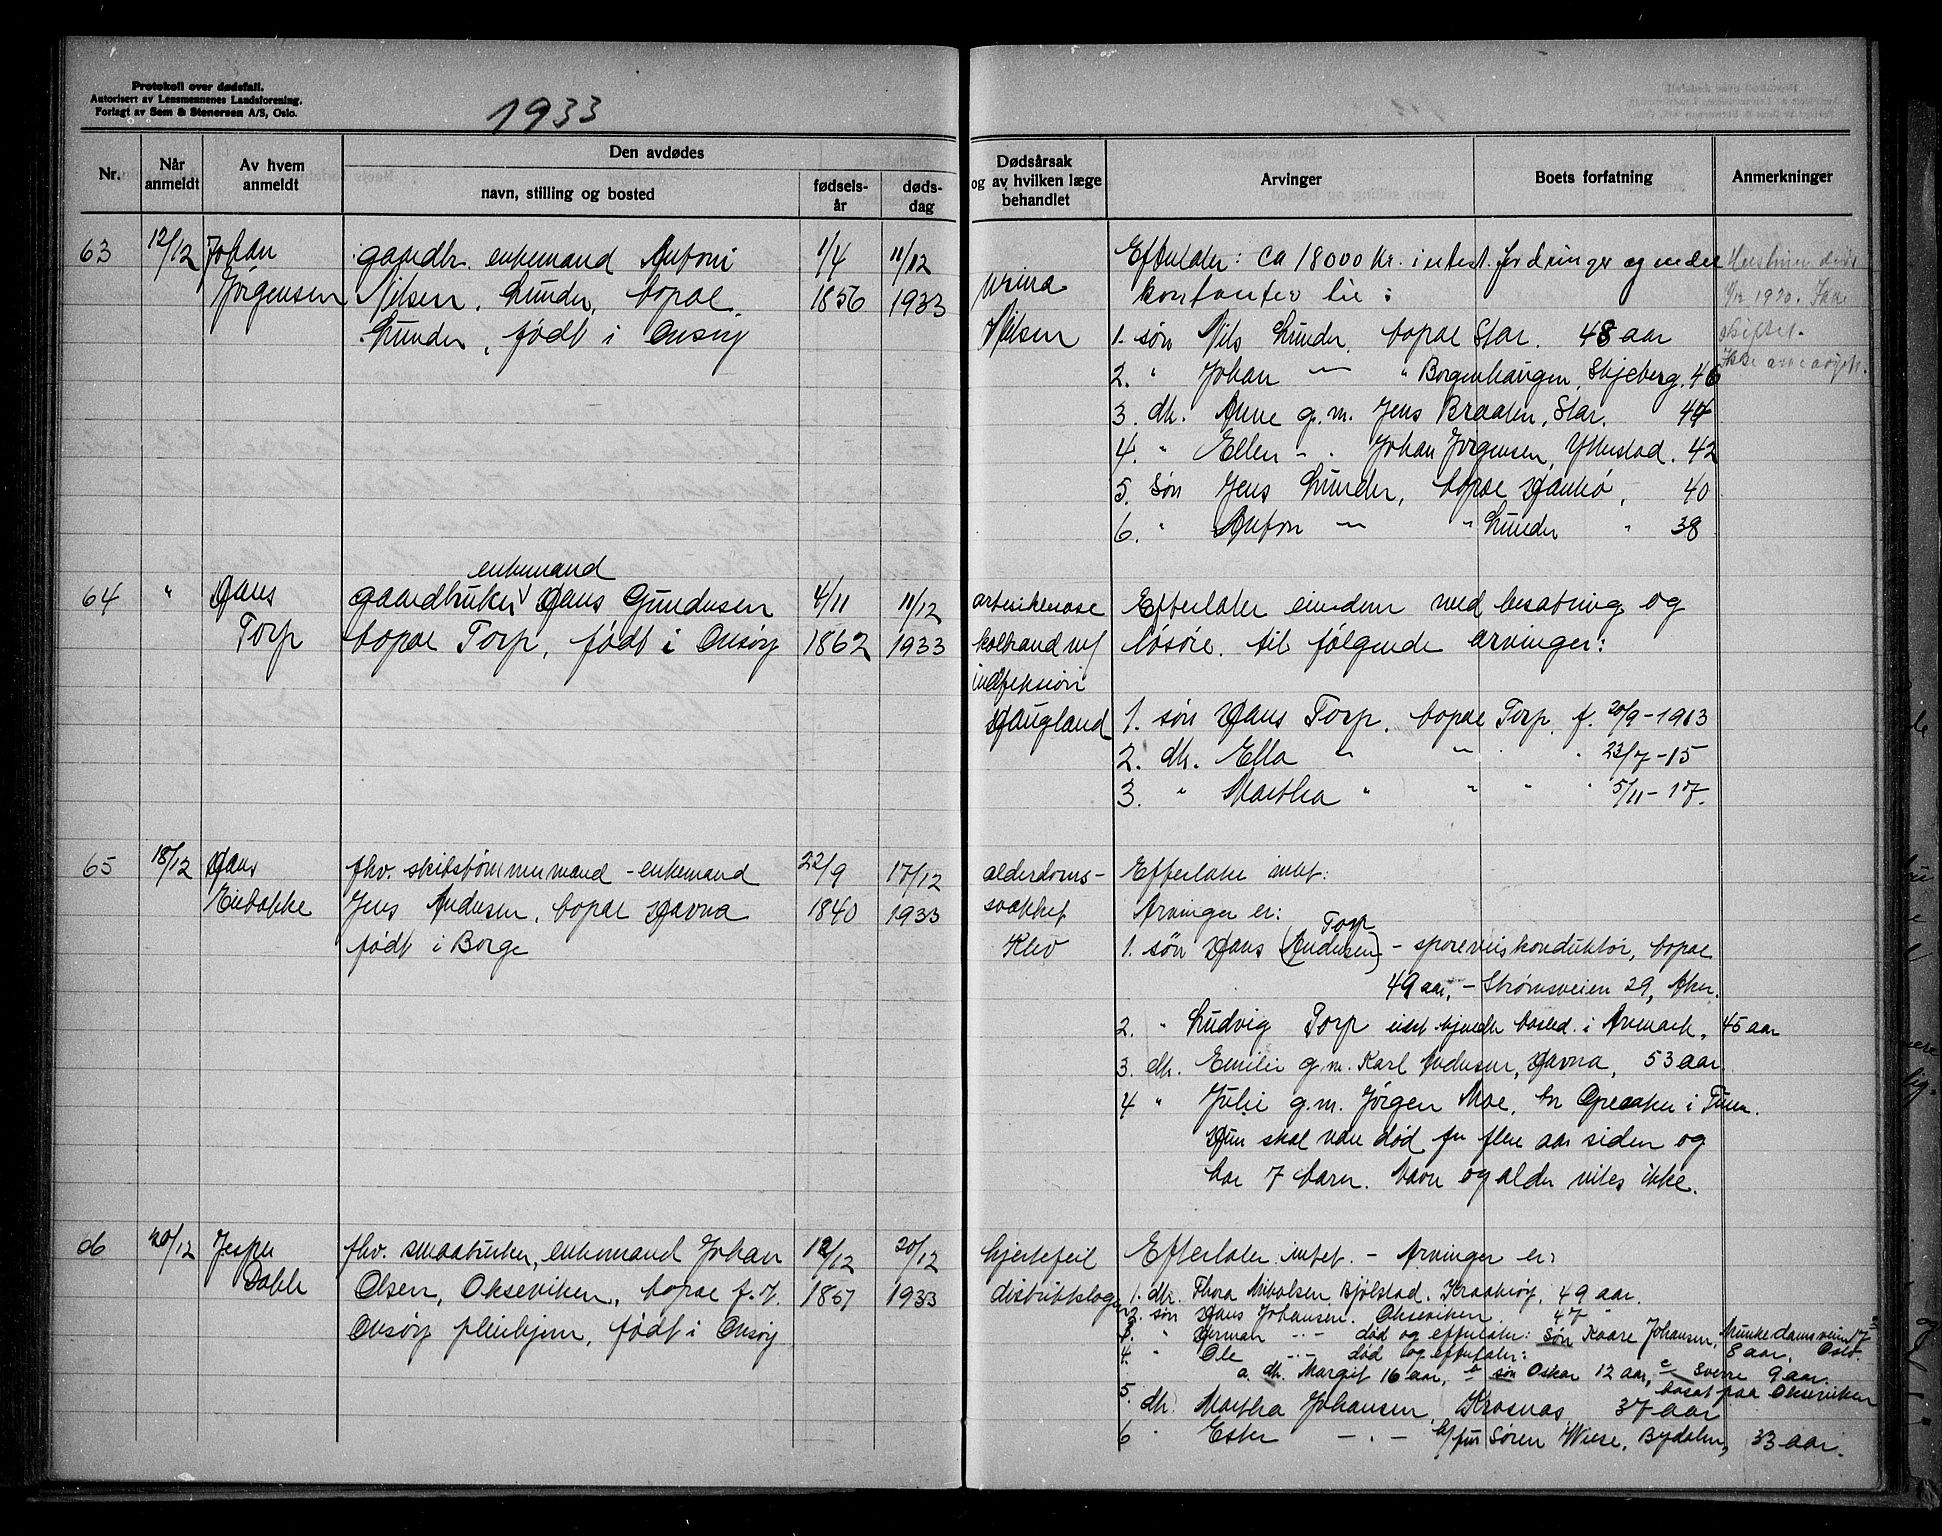 Protokoll over dødsfall.
Autorisert av Lensmennenes Landsforening.
Forlagt av Sem & Stenersen A/S, Oslo.
1933
Nr.
Når anmeldt
Av hvem anmeldt
Den avdødes
navn, stilling og bosted
fødselsår
dødsdag
Dødsårsak og av hvilken læge behandlet
Arvinger
Boets forfatning
Anmerkninger
63 12/12 Johan gaardbr. enkemand Anton 1/4 11/12
Jørgensen Nilsen, Lunder, bopæl 1856 1933
Lunder, født i Onsøy
urina
Nilsen
Efterlater: ca 18000 kr. i utest. fordringer og
kontanter til:
1. søn Nils Lunder, bopæl Star. 48 aar
2. " Johan — " Borgenhaugen, Skjeberg. 46
3. dtr. Anne g.m. Jens Braaten, Star. 44
4. " Ellen - . Johan Jørgensen, Ytterstad. 42
5. søn Jens Lunder, bopæl Hankø, 40
6. " Anton — " Lunder " 38
1920. Ikke
skiftet.
Ikke
64 " Hans gaardbruker enkemand Hans Gundersen 4/11 11/12
Torp bopæl Torp, født i Onsøy 1862 1933
kolbrand m/
infeksion
Haugland
Efterlater eiendom med besætning og
løsøre til følgende arvinger:
1. søn Hans Torp, bopæl Torp, f. 20/9-1913
2. dtr. Ella " " " 23/7-15
3. " Martha " " " " 5/11-17.
65 18/12 Hans fhv. skibstømmermand - enkemand 22/9 17/12
Enbakke Jens Andersen, bopæl Havna 1840 1933
født i Borge
alderdoms-
svækket
Klev
Efterlater intet:
Arvinger er:
1. søn Hans (Andersen) Torp - sporveiskonduktør, bopæl
49 aar, - Strømsveien 29, Aker.
2. " Ludvig Torp uten kjendt bosted i Aremark, 45 aar
3. dtr. Emilie g.m. Karl Andersen, Havna, 53 aar
4 " Julie g.m. Jørgen Moe, bor Greaaker i Tune.
Hun skal være død for flere aar siden og
har 7 barn. Navn og alder vites ikke.
66 20/12 Jesper fhv. smaabruker, enkemand Johan 12/12 20/12
Dahle Olsen, Okseviken, bopæl f.t. 1857 1933
Onsøy pleiehjem, født i Onsøy
hjertefeil
distriktslægen
Efterlater intet. - Arvinger er:
1. dtr. Thora Nikolsen Bjølstad, Kraakerøy, 49 aar.
2. søn Hans Johansen, Okseviken 47 "
3. " Herman -.- død og efterlater: søn Kaare Johansen, Munkedamsveien
8 aar, Oslo.
4. " Ole -.- død og efterlater:
a. dtr. Margit 16 aar, b søn Oskar 12 aar, c Sverre 9 aar.
bosat paa Okseviken
5. dtr. Martha Johansen, Krosnæs 37 aar
6 " Ester -.- h/fru Søren Wiese, Bydalen, 33 aar.